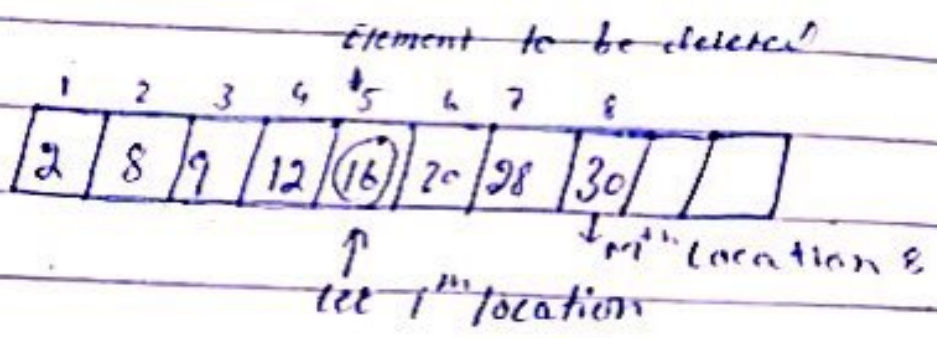 Element to be deleted
1 2 3 4 5 6 7 8
2 8 9 12 16 20 28 30
location 8
location